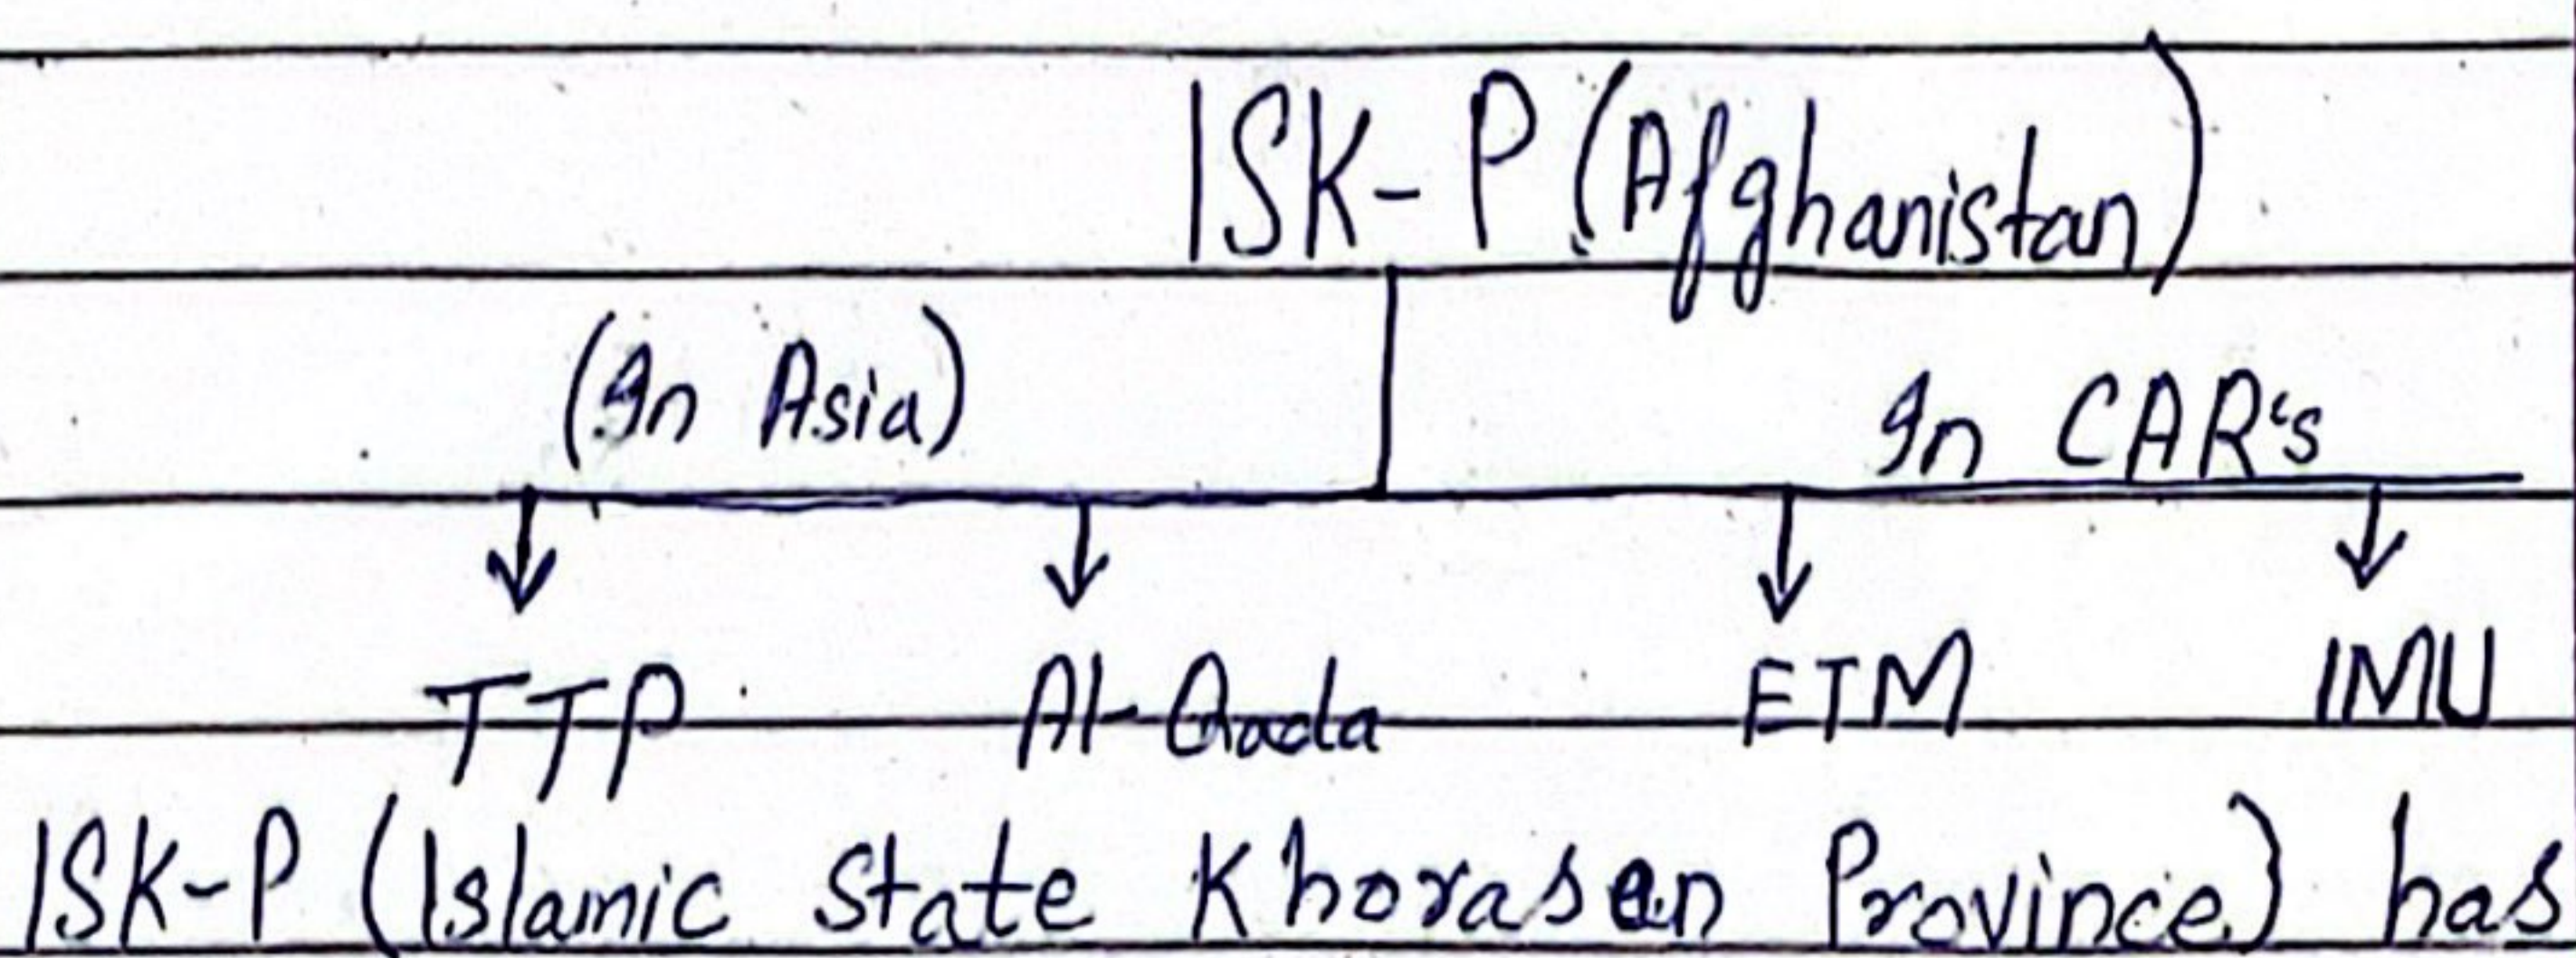 ISK-P (Afghanistan)
(In Asia) In CAR's
TTP Al-Qada ETM IMU
ISK-P (Islamic State Khorasan Province) has